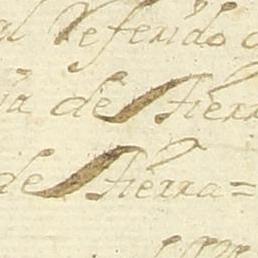 al Referido
de Tierr
de Tierra =